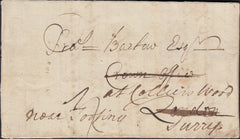 Barlow Esqr
Crown Office
at Colliers Wood
London
near Tooting
Surry